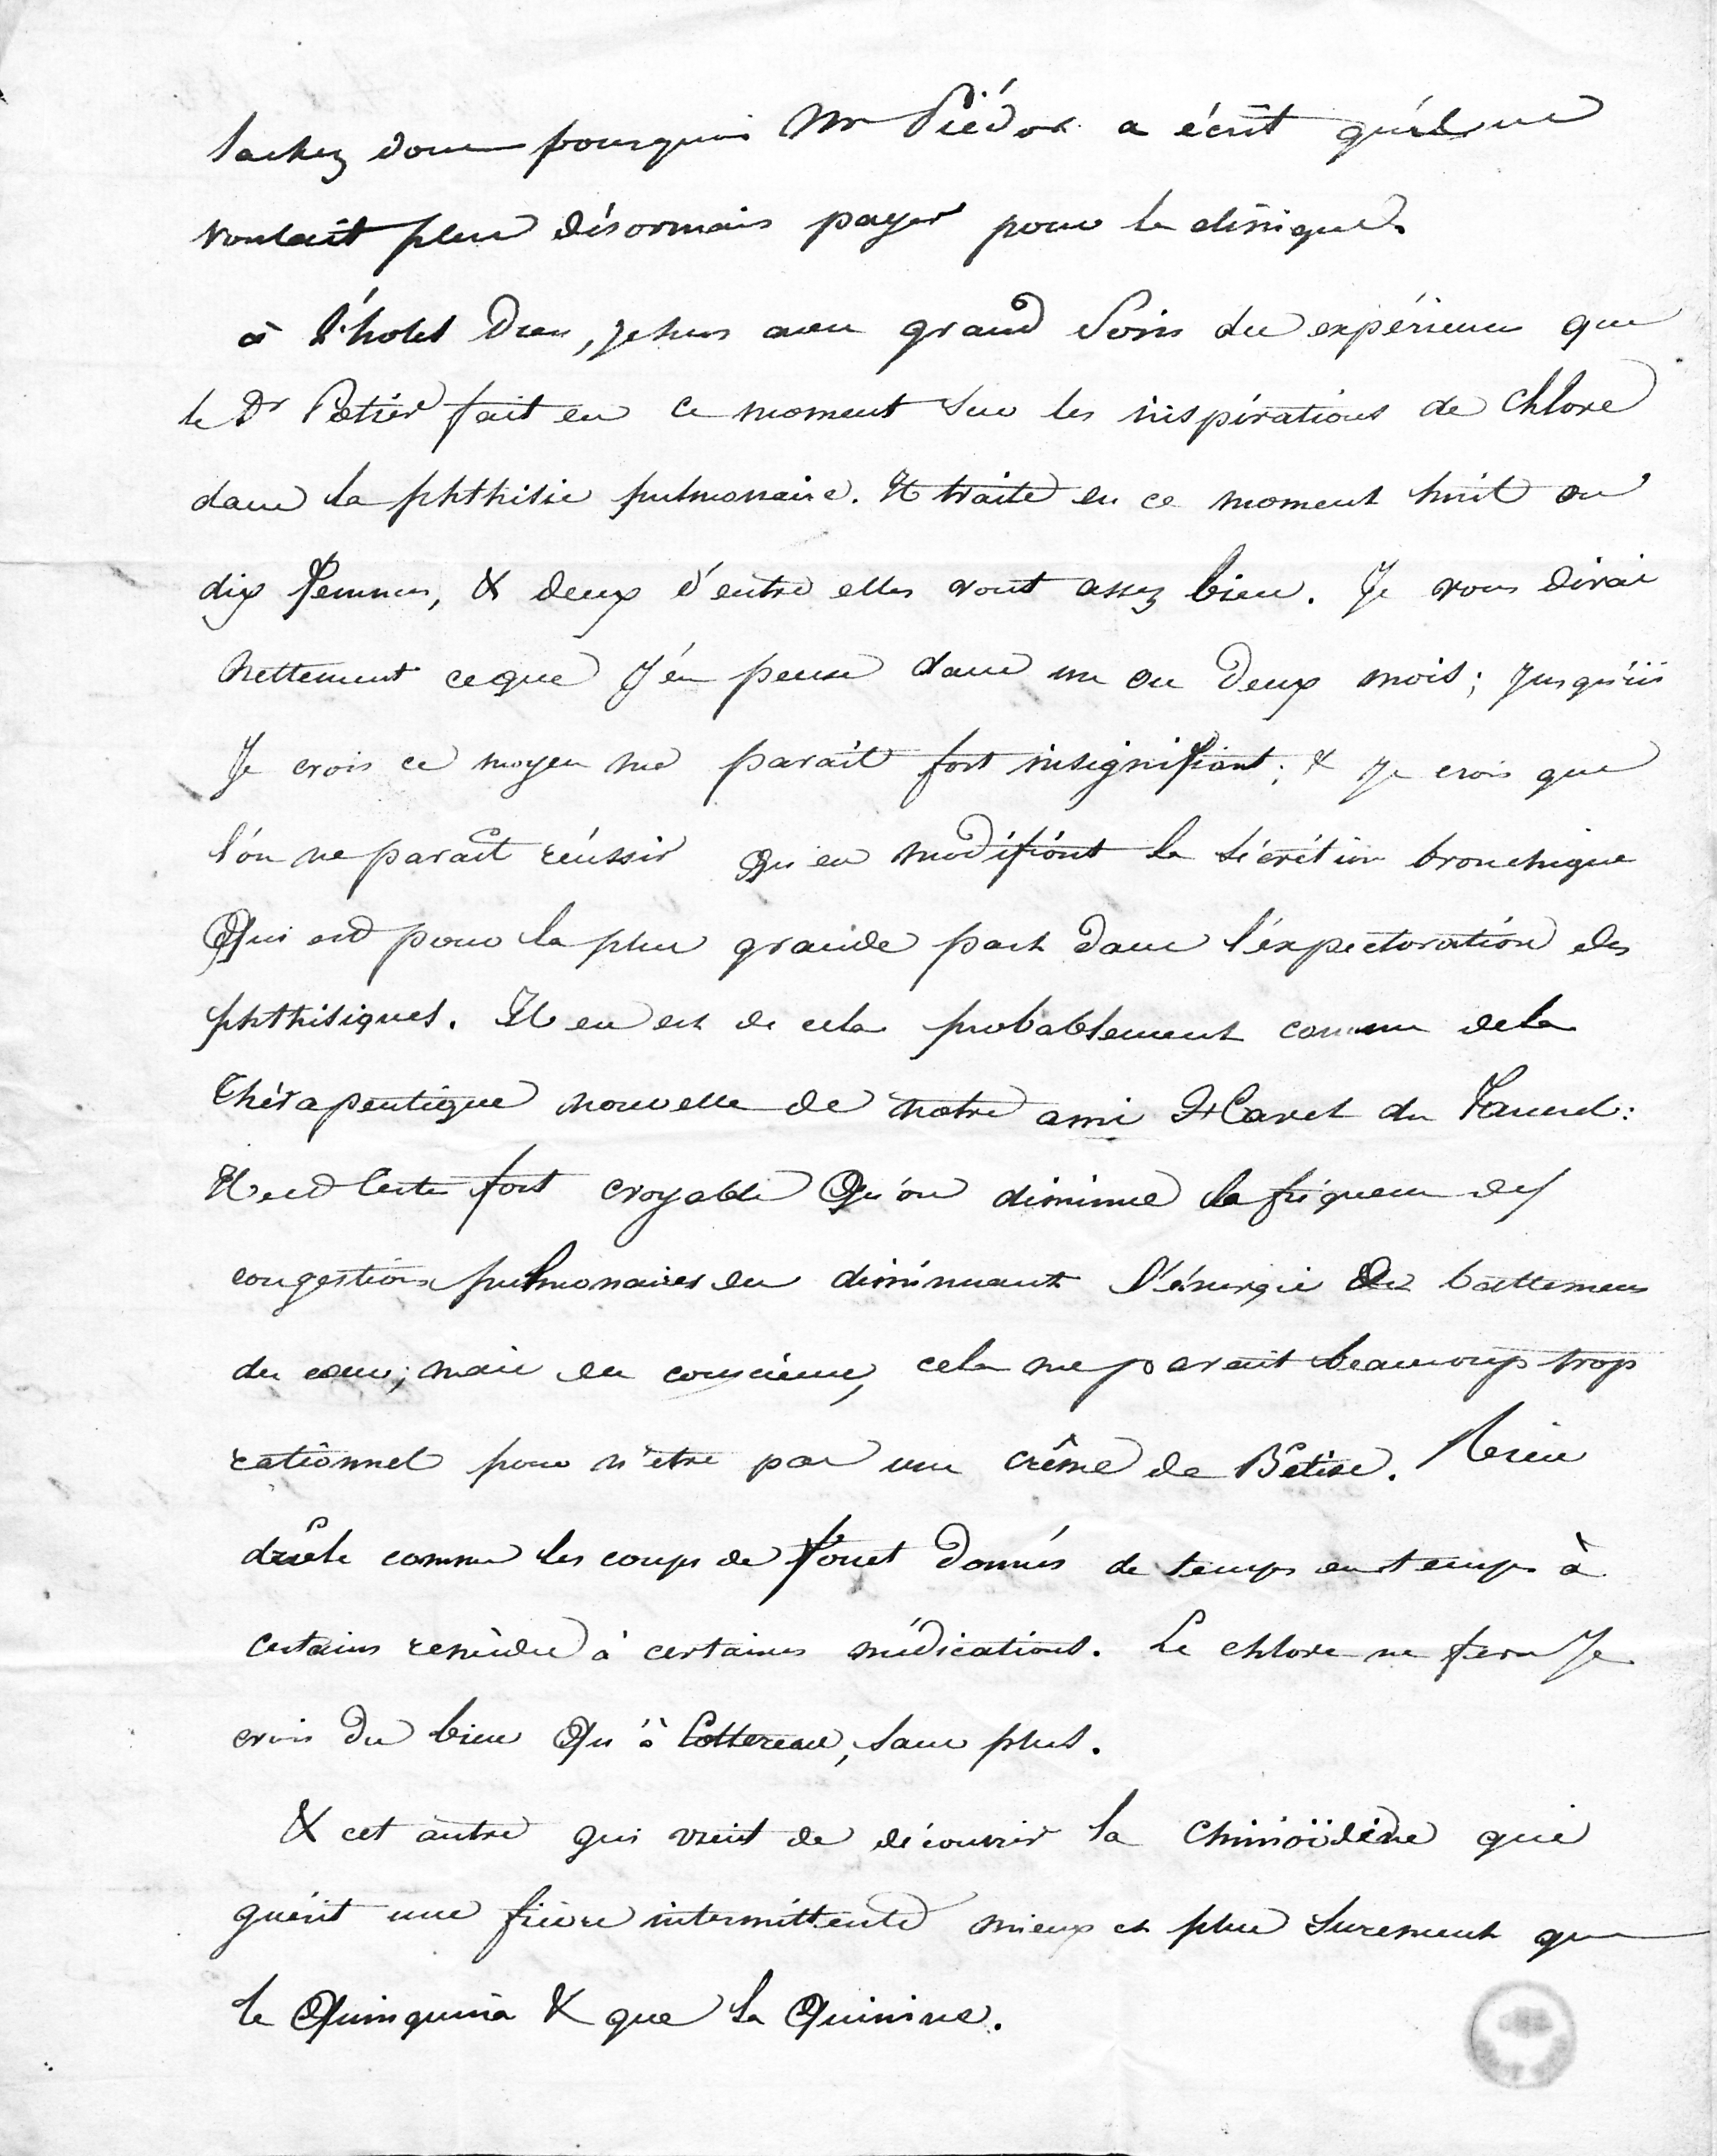 Sachez donc pourquoi Mr Piédor a écrit qu'il ne
voulait plus désormais payer pour la clinique.
à l'hotel Dieu, je suis avec grand soin des expériences que
le Dr fait en ce moment sur les inspirations de chlore
dans la phthisie pulmonaire. Il traite en ce moment huit ou
dix femmes, & deux d'entre elles vont assez bien. Je vous dirai
nettement ce que j'en pense dans un ou deux mois; jusqu'ici
Je crois ce moyen me parait fort insignifiant; & je crois que
l'on ne parait réussir qu'en modifiant la sécrétion bronchique
Qui est pour la plus grande part dans l'expectoration des
phthisiques. Il en est de cela probablement comme de la
Thérapeutique nouvelle de notre ami du
Il est certes fort croyable Qu'on diminue la fréquence des
congestions pulmonaires en diminuant l'énergie des battemens
du cœur; mais en conscience, cela me parait beaucoup trop
rationnel pour n'être pas une crême de Bêtise. Rien
drôle comme les coups de fouet donnés de temps en temps à
certains remèdes à certaines médications. Le chlore ne fera Je
crois du bien Qu'à Cottereau, sans plus.
& cet autre qui vient de découvrir la chinoïdine qui
guérit une fièvre intermittente mieux et plus surement que
le Quinquina & que la Quinine.